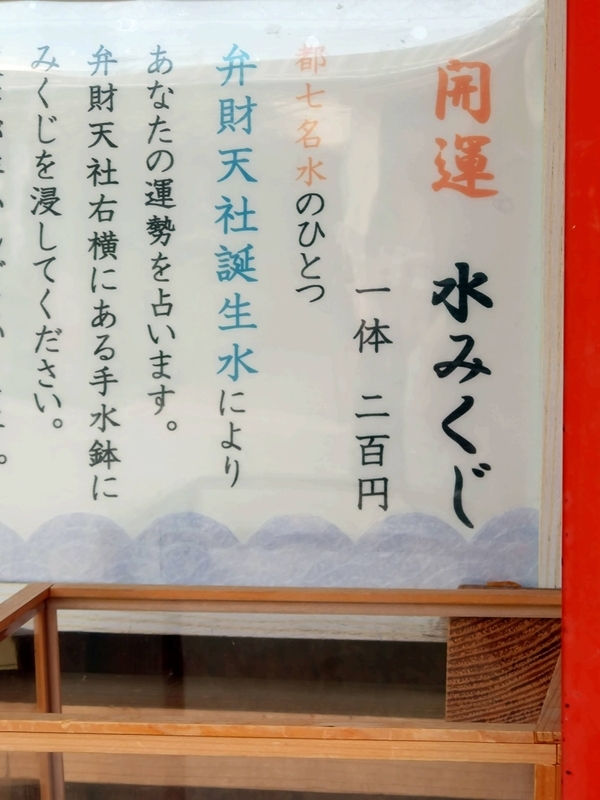 開運 水みくじ
一体 二百円
都七名水のひとつ
弁財天社誕生水により
あなたの運勢を占います。
弁財天社右横にある手水鉢に
みくじを浸してください。